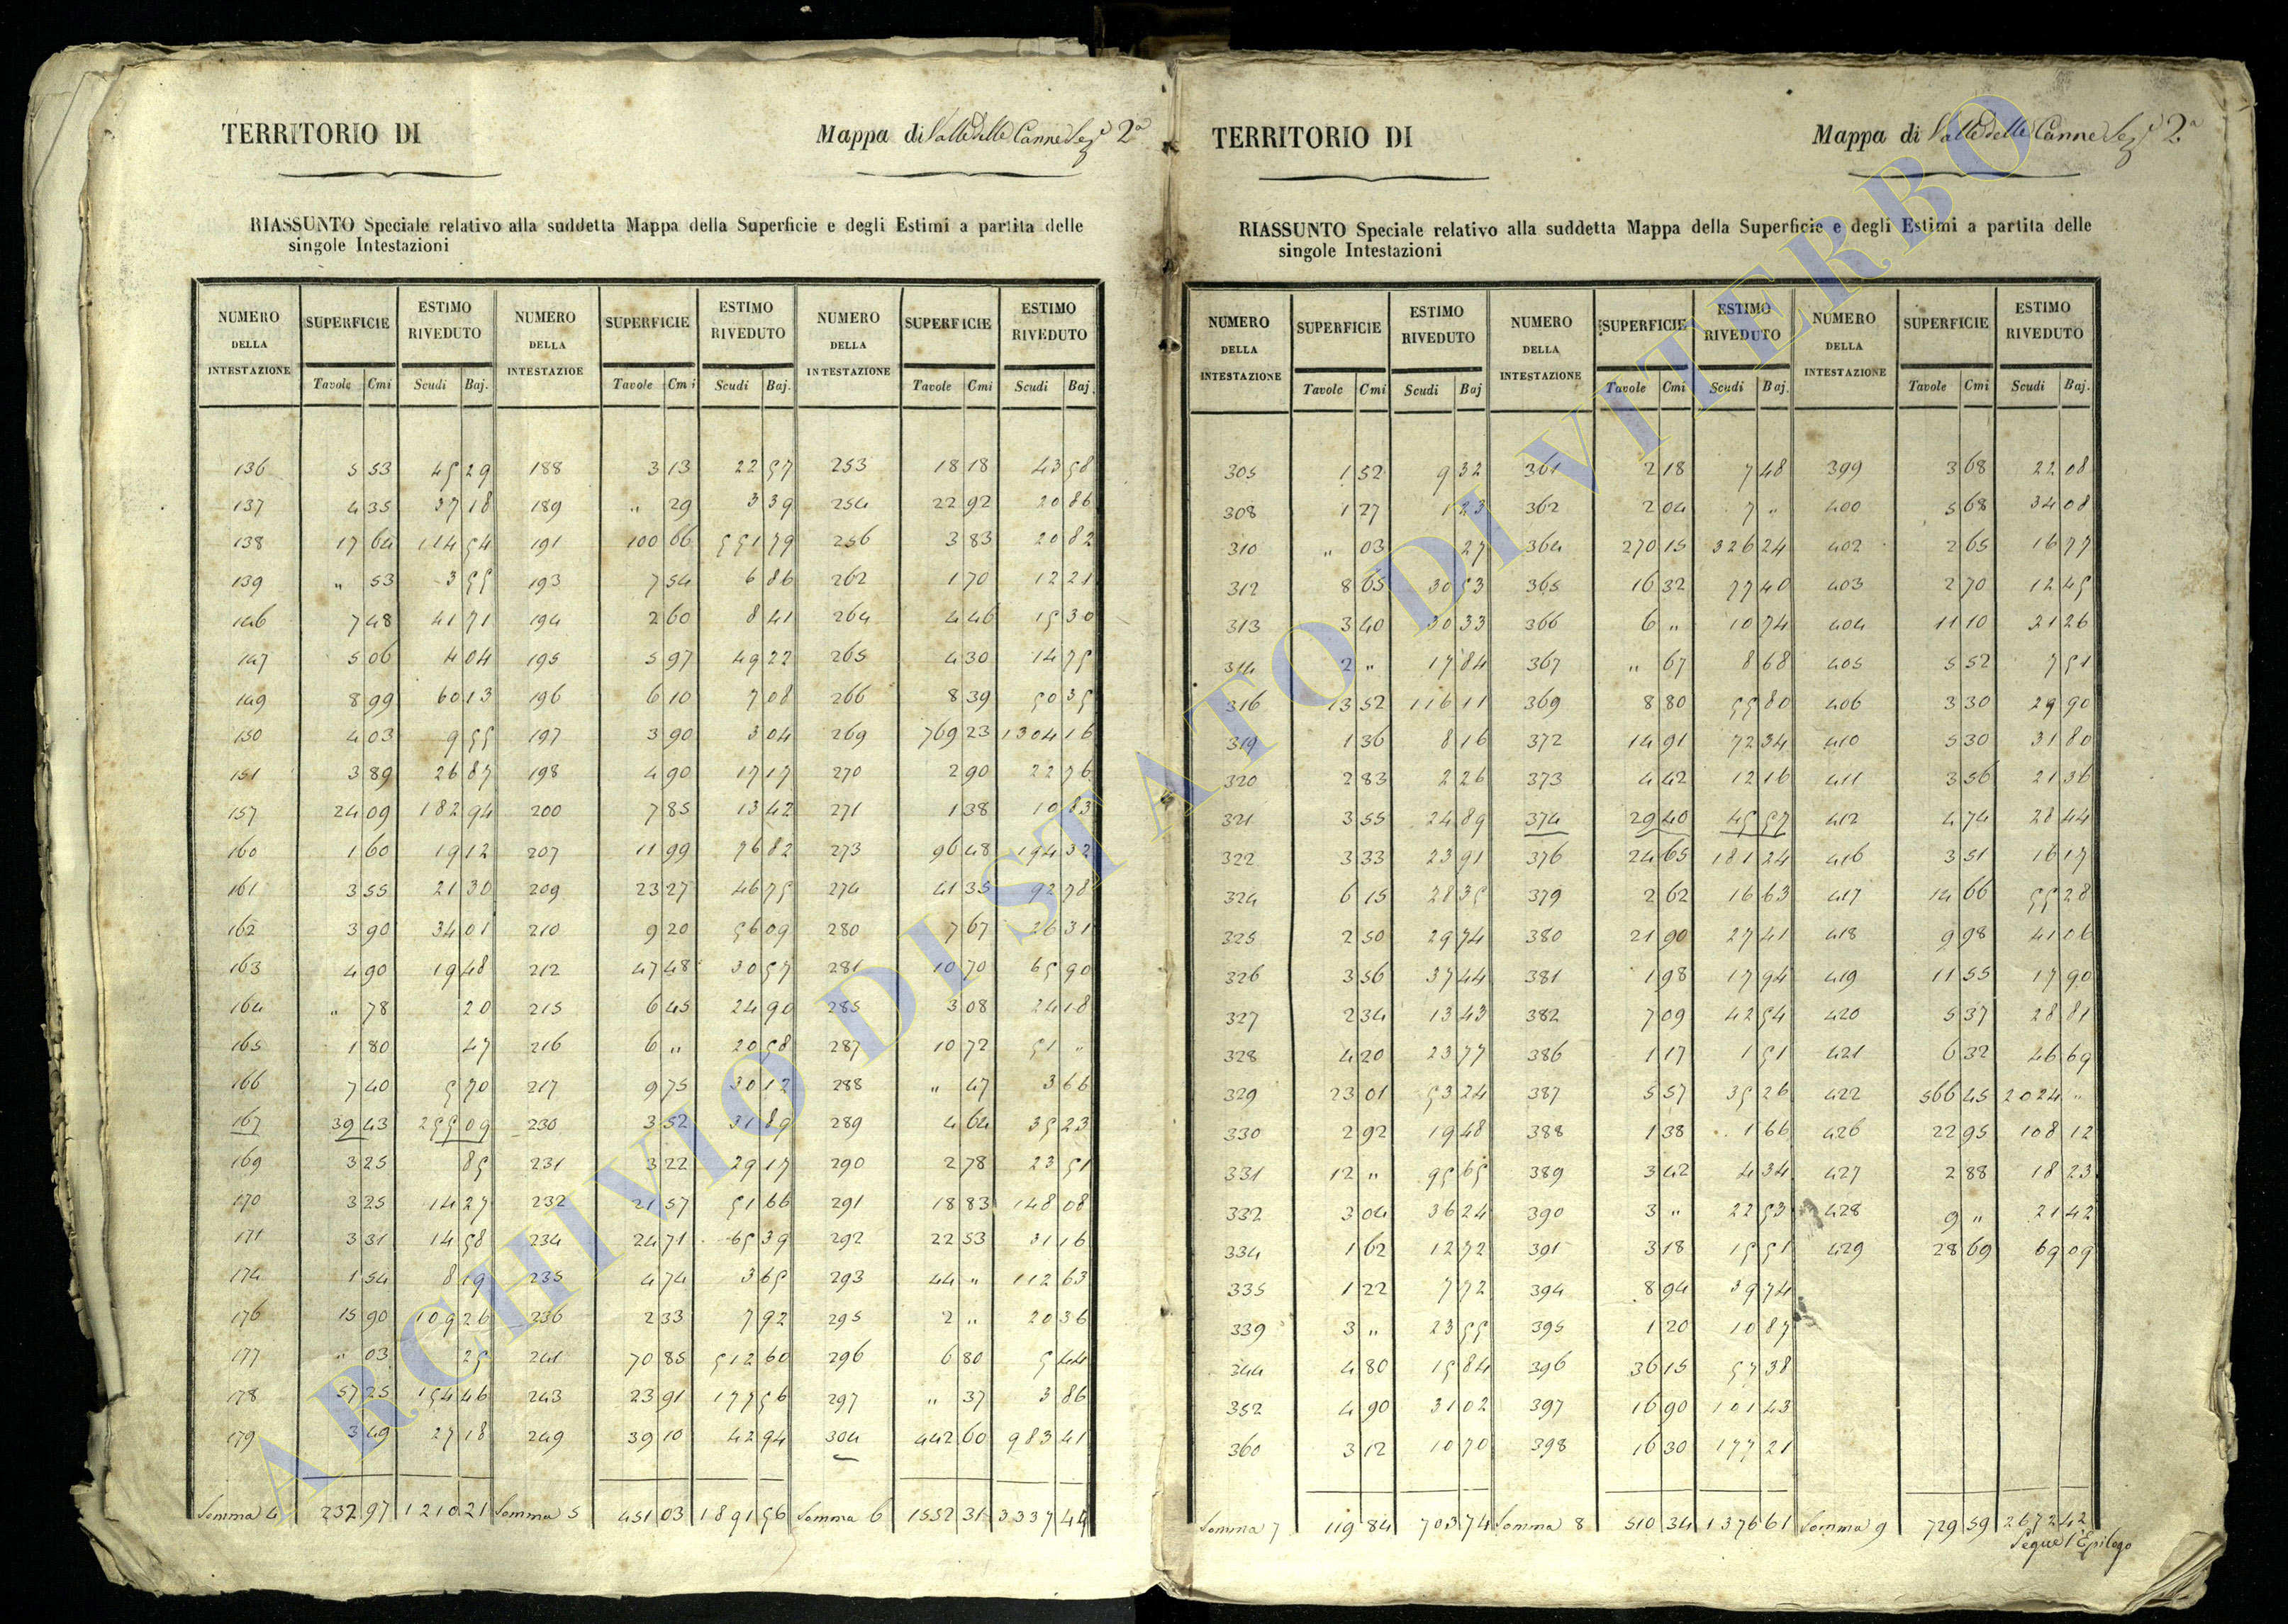 TERRITORIO DI
Mappa di Valle delle Canne Sez.e 2a
RIASSUNTO Speciale relativo alla suddetta Mappa della Superficie e degli Estimi a partita delle
singole Intestazioni
NUMERO DELLA INTESTAZIONE SUPERFICIE ESTIMO RIVEDUTO NUMERO DELLA INTESTAZIOE SUPERFICIE ESTIMO RIVEDUTO NUMERO DELLA INTESTAZIONE SUPERFICIE ESTIMO RIVEDUTO
Tavole Cmi Scudi Baj. Tavole Cmi Scudi Baj. Tavole Cmi Scudi Baj.
136 5 53 45 29 188 3 13 22 57 253 18 18 43 58
137 4 35 37 18 189 " 29 3 39 254 22 92 20 86
138 17 64 114 54 191 100 66 551 79 256 3 83 20 82
139 " 53 3 55 193 7 54 6 86 262 1 70 12 21
146 7 48 41 71 194 2 60 8 41 264 4 46 15 30
147 5 06 4 04 195 5 97 49 22 265 4 30 14 75
149 8 99 60 13 196 6 10 7 08 266 8 39 50 35
150 4 03 9 55 197 3 90 3 04 269 769 23 1304 16
151 3 89 26 87 198 4 90 17 17 270 2 90 22 76
157 24 09 182 94 200 7 85 13 42 271 1 38 10 83
160 1 60 19 12 207 11 99 76 82 273 96 48 194 32
161 3 55 21 30 209 23 27 46 75 274 41 35 92 78
162 3 90 34 01 210 9 20 56 09 280 7 67 26 31
163 4 90 19 48 212 47 48 30 57 281 10 70 65 90
164 " 78 20 215 6 45 24 90 285 3 08 24 18
165 1 80 47 216 6 " 20 58 287 10 72 51 "
166 7 40 5 70 217 9 75 30 12 288 " 47 3 66
167 39 43 255 09 230 3 52 31 89 289 4 64 35 23
169 3 25 85 231 3 22 29 17 290 2 78 23 51
170 3 25 14 27 232 21 57 51 66 291 18 83 148 08
171 3 31 14 58 234 24 71 65 39 292 22 53 31 16
174 1 54 8 19 235 4 74 3 65 293 44 " 112 63
176 15 90 109 26 236 2 33 7 92 295 2 " 20 36
177 " 03 25 241 70 85 512 60 296 6 80 5 44
178 57 25 154 46 243 23 91 177 56 297 " 37 3 86
179 3 49 27 18 249 39 10 42 94 304 442 60 983 41
Somma 4 232 97 1210 21 Somma 5 451 03 1891 56 Somma 6 1552 31 3337 44
TERRITORIO DI
Mappa di Valle delle Canne Sez.e 2a
RIASSUNTO Speciale relativo alla suddetta Mappa della Superficie e degli Estimi a partita delle
singole Intestazioni
NUMERO DELLA INTESTAZIONE SUPERFICIE ESTIMO RIVEDUTO NUMERO DELLA INTESTAZIONE SUPERFICIE ESTIMO RIVEDUTO NUMERO DELLA INTESTAZIONE SUPERFICIE ESTIMO RIVEDUTO
Tavole Cmi Scudi Baj Tavole Cmi Scudi Baj. Tavole Cmi Scudi Baj.
305 1 52 9 32 361 2 18 7 48 399 3 68 22 08
308 1 27 1 23 362 2 04 7 " 400 5 68 34 08
310 " 03 27 364 270 15 326 24 402 2 65 16 77
312 8 65 30 53 365 16 32 77 40 403 2 70 12 45
313 3 40 30 33 366 6 " 10 74 404 11 10 21 26
314 2 " 17 84 367 " 67 8 68 405 5 52 7 51
316 13 52 116 11 369 8 80 55 80 406 3 30 29 90
319 1 36 8 16 372 14 91 72 34 410 5 30 31 80
320 2 83 2 26 373 4 42 12 16 411 3 56 21 36
321 3 55 24 89 374 29 40 45 57 412 4 74 28 44
322 3 33 23 91 376 24 65 181 24 416 3 51 16 17
324 6 15 28 35 379 2 62 16 63 417 14 66 55 28
325 2 50 29 74 380 21 90 27 41 418 9 98 41 06
326 3 56 37 44 381 1 98 17 94 419 11 55 17 90
327 2 34 13 43 382 7 09 42 54 420 5 37 28 81
328 4 20 23 77 386 1 17 1 51 421 6 32 46 69
329 23 01 53 24 387 5 57 35 26 422 566 45 2024 "
330 2 92 19 48 388 1 38 1 66 426 22 95 108 12
331 12 " 95 65 389 3 42 4 34 427 2 88 18 23
332 3 04 36 24 390 3 " 22 53 428 9 " 21 42
334 1 62 12 72 391 3 18 15 51 429 28 69 69 09
335 1 22 7 72 394 8 94 39 74
339 3 " 23 55 395 1 20 10 87
344 4 80 15 84 396 36 15 57 38
352 4 90 31 02 397 16 90 101 43
360 3 12 10 70 398 16 30 177 21
Somma 7 119 84 703 74 Somma 8 510 34 1376 61 Somma 9 729 59 2672 42
Segue l'Epilogo
ARCHIVIO DI STATO DI VITERBO